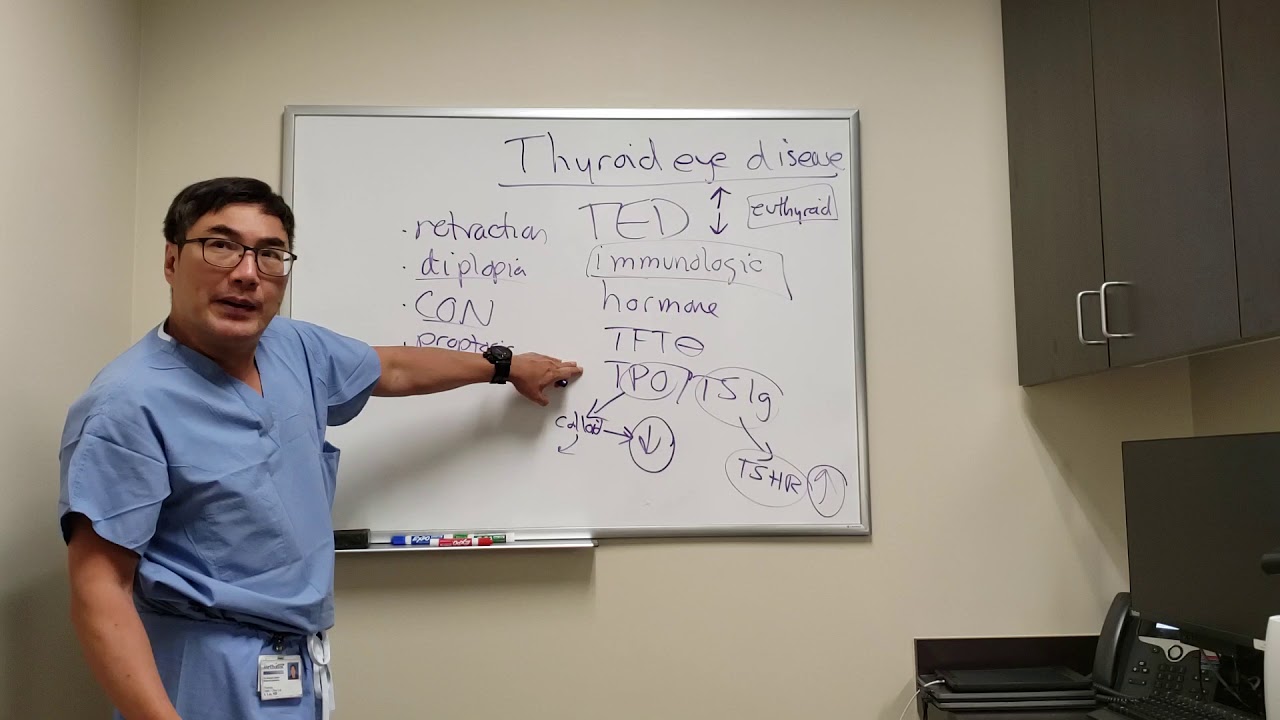 Thyroid eye disease
TED ↑ ↓ euthyroid
immunologic
hormone
TFT ⊖
TPO / TSIg
↓
TSHR ↑
· retraction
· diplopia
· CON
· proptosis